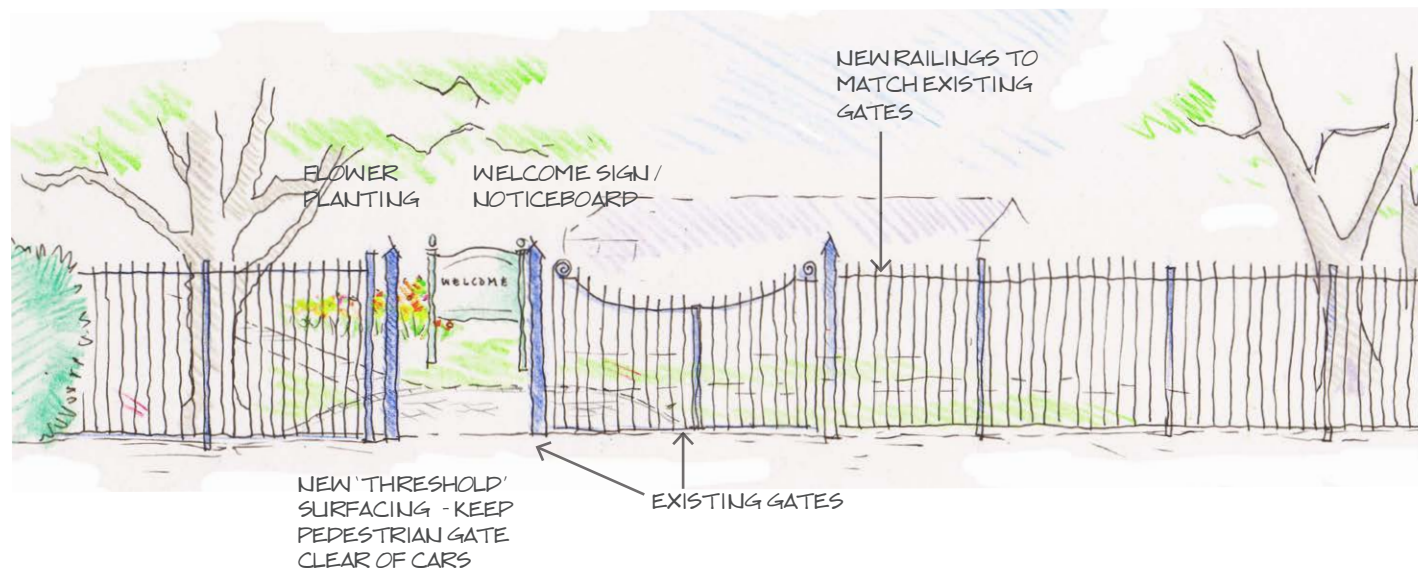 NEW RAILINGS TO
MATCH EXISTING
GATES
FLOWER
PLANTING
WELCOME SIGN /
NOTICEBOARD
WELCOME
NEW 'THRESHOLD'
SURFACING - KEEP
PEDESTRIAN GATE
CLEAR OF CARS
EXISTING GATES